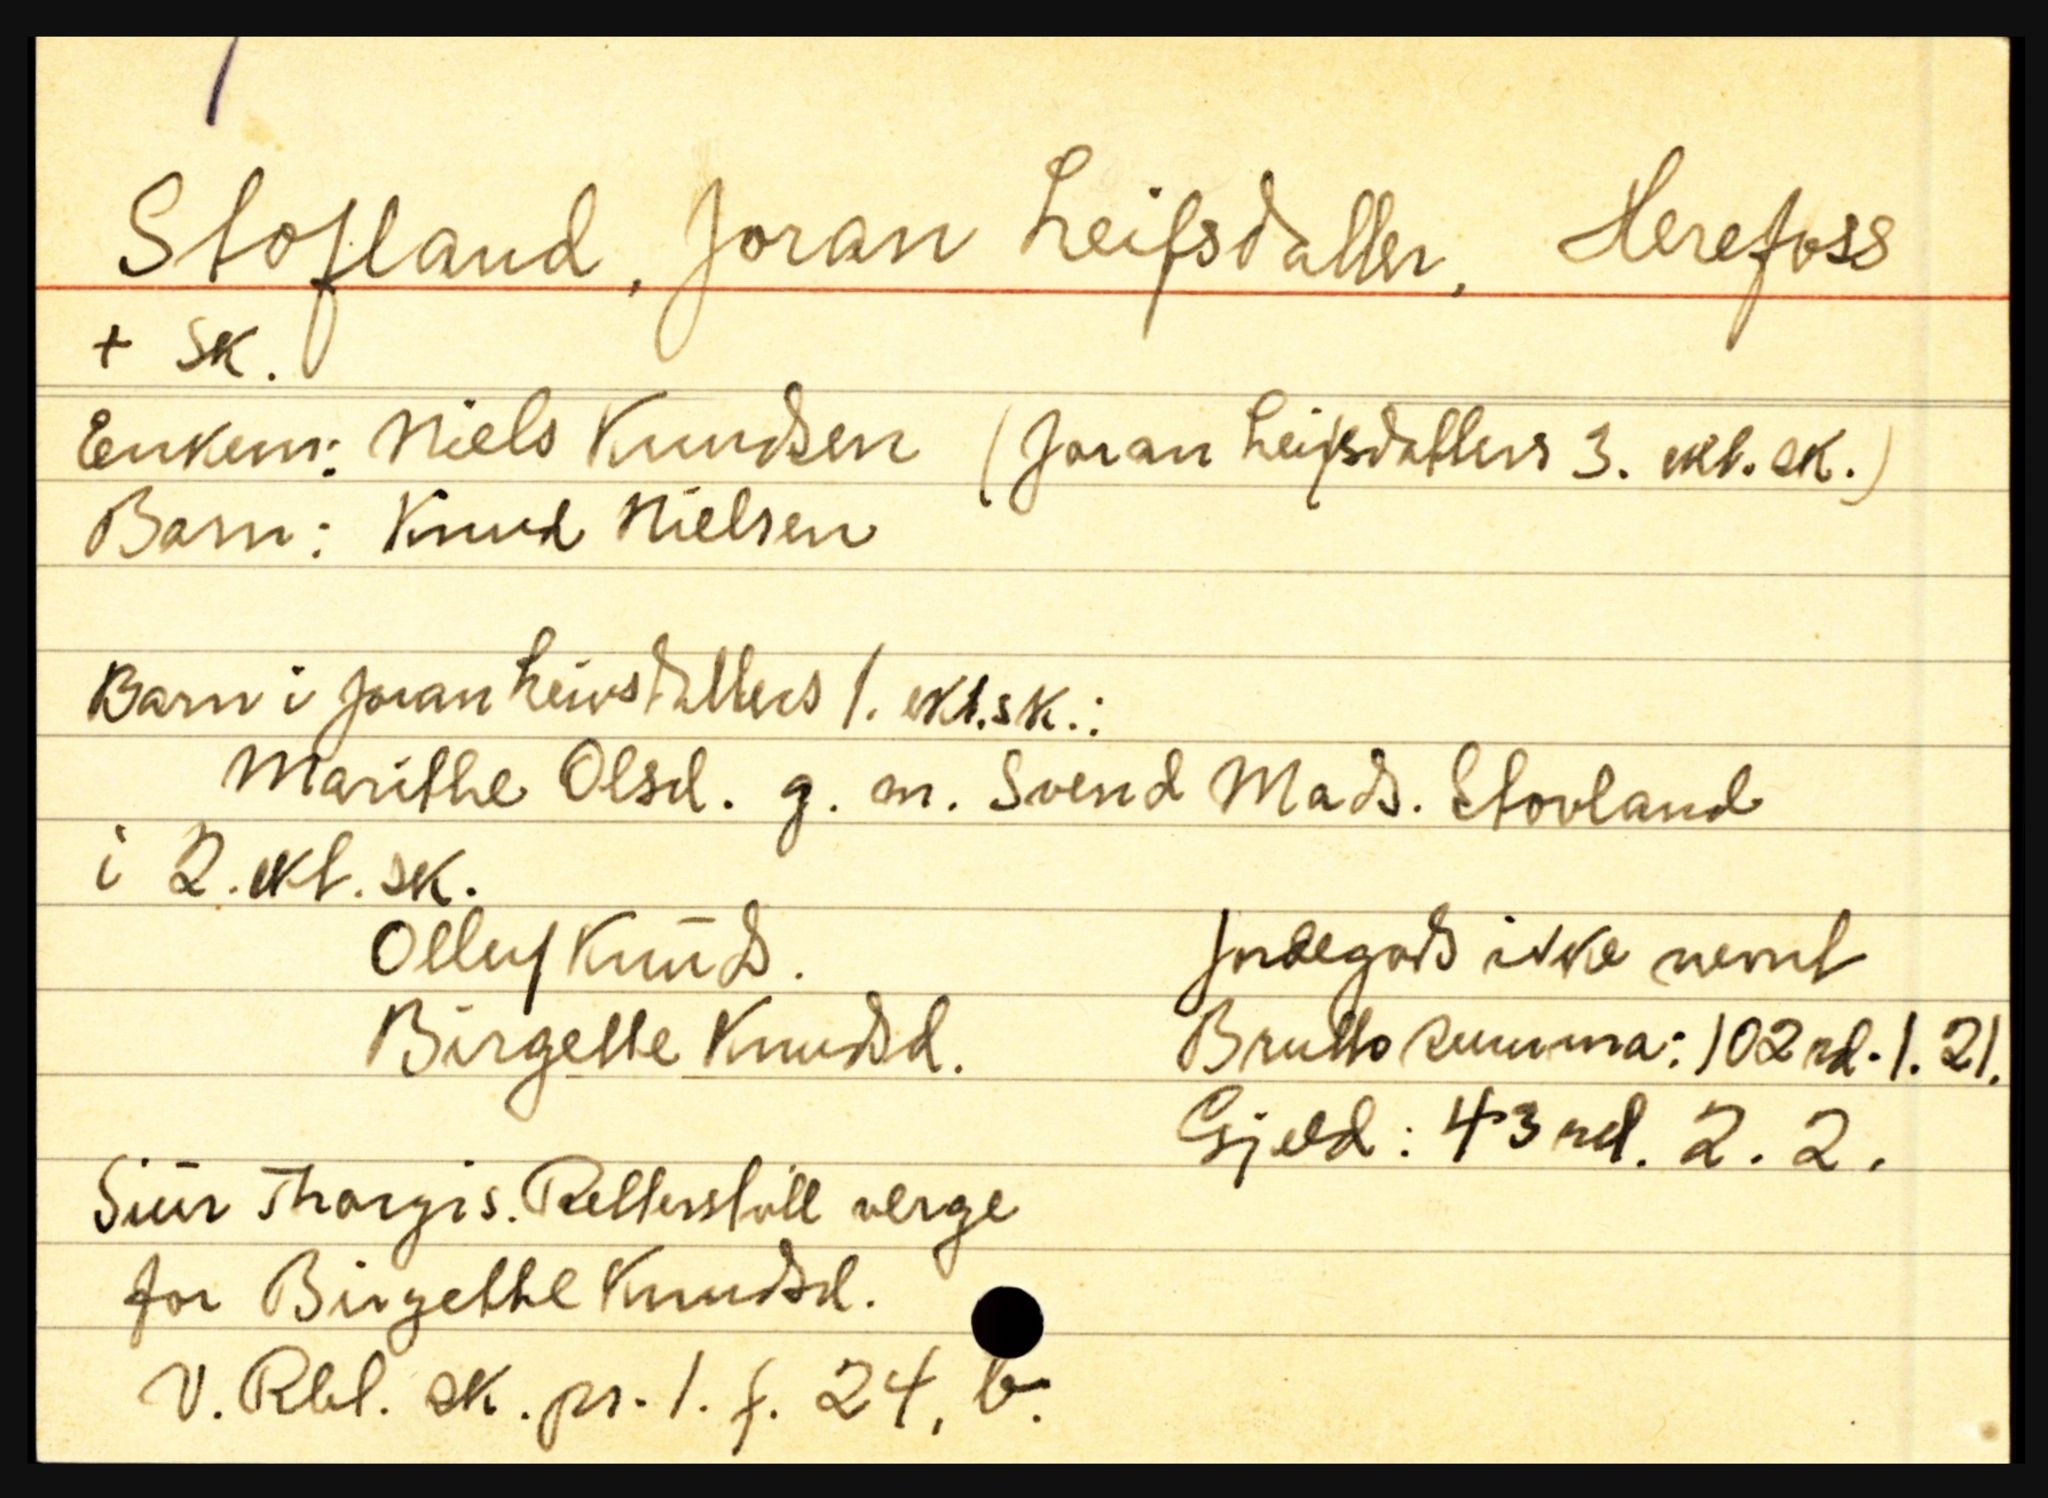 Stofland, Joran Leifsdatter, Herefoss
+ sk.
Enkem: Niels Knudsen (Joran Leifsdatters 3. ekt. sk.)
Barn: Knud Nielsen
Barn i Joran Leivsdatters 1. ekt.sk.:
Marithe Olsd. g. m. Svend Mads. Stovland
i 2. ekt. sk.
Olluf Knuds.
Birgette Knudsd.
Jordegods ikke nevnt
Brutto summa: 102 rd. 1. 21.
Gjeld: 43 rd. 2. 2.
Siur Thorgis. Retterstøll verge
for Birgethe Knudsd.
V. Rbl. sk. pr. 1. f. 24, b.